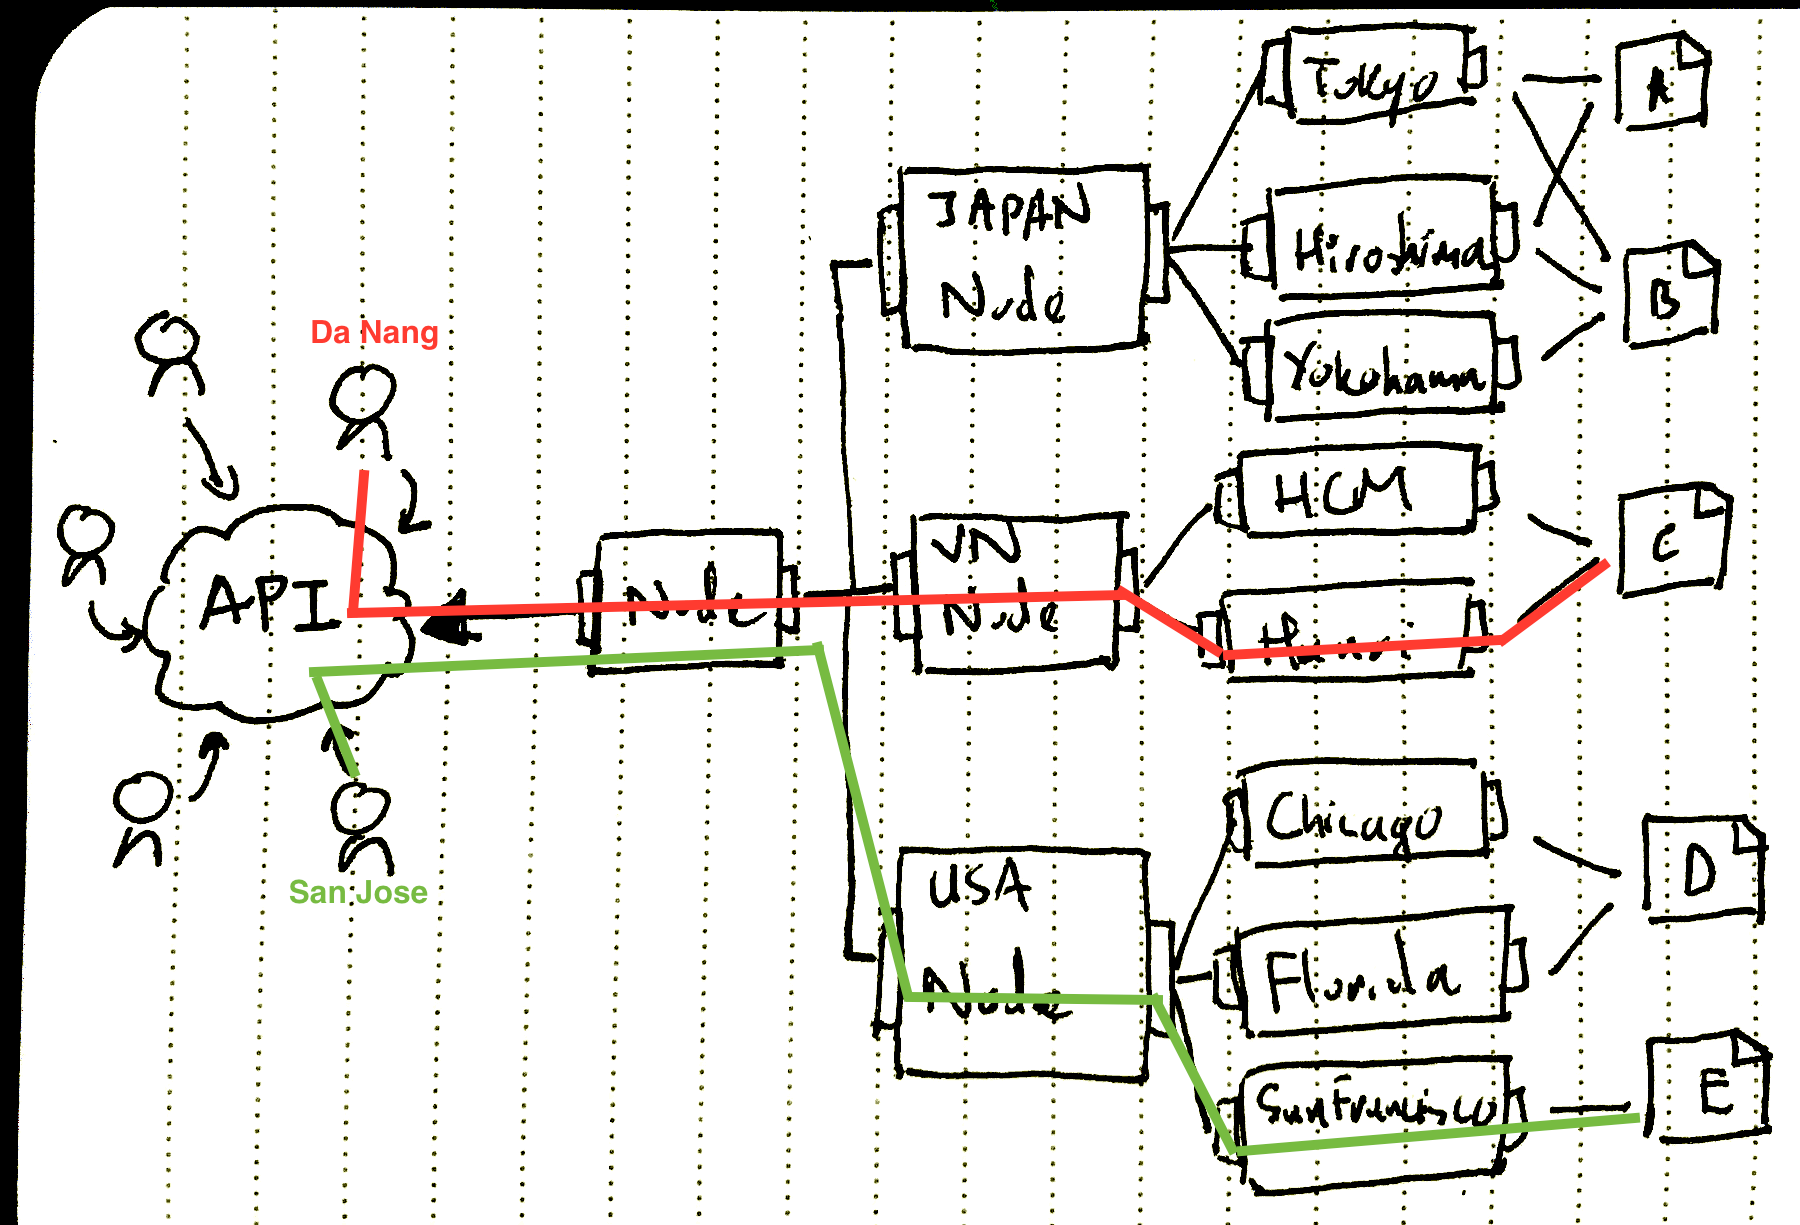 Da Nang
API
San Jose
Node
JAPAN
Node
VN
Node
USA
Node
Tokyo
Hiroshima
Yokohama
HCM
Hanoi
Chicago
Florida
San Francisco
A
B
C
D
E